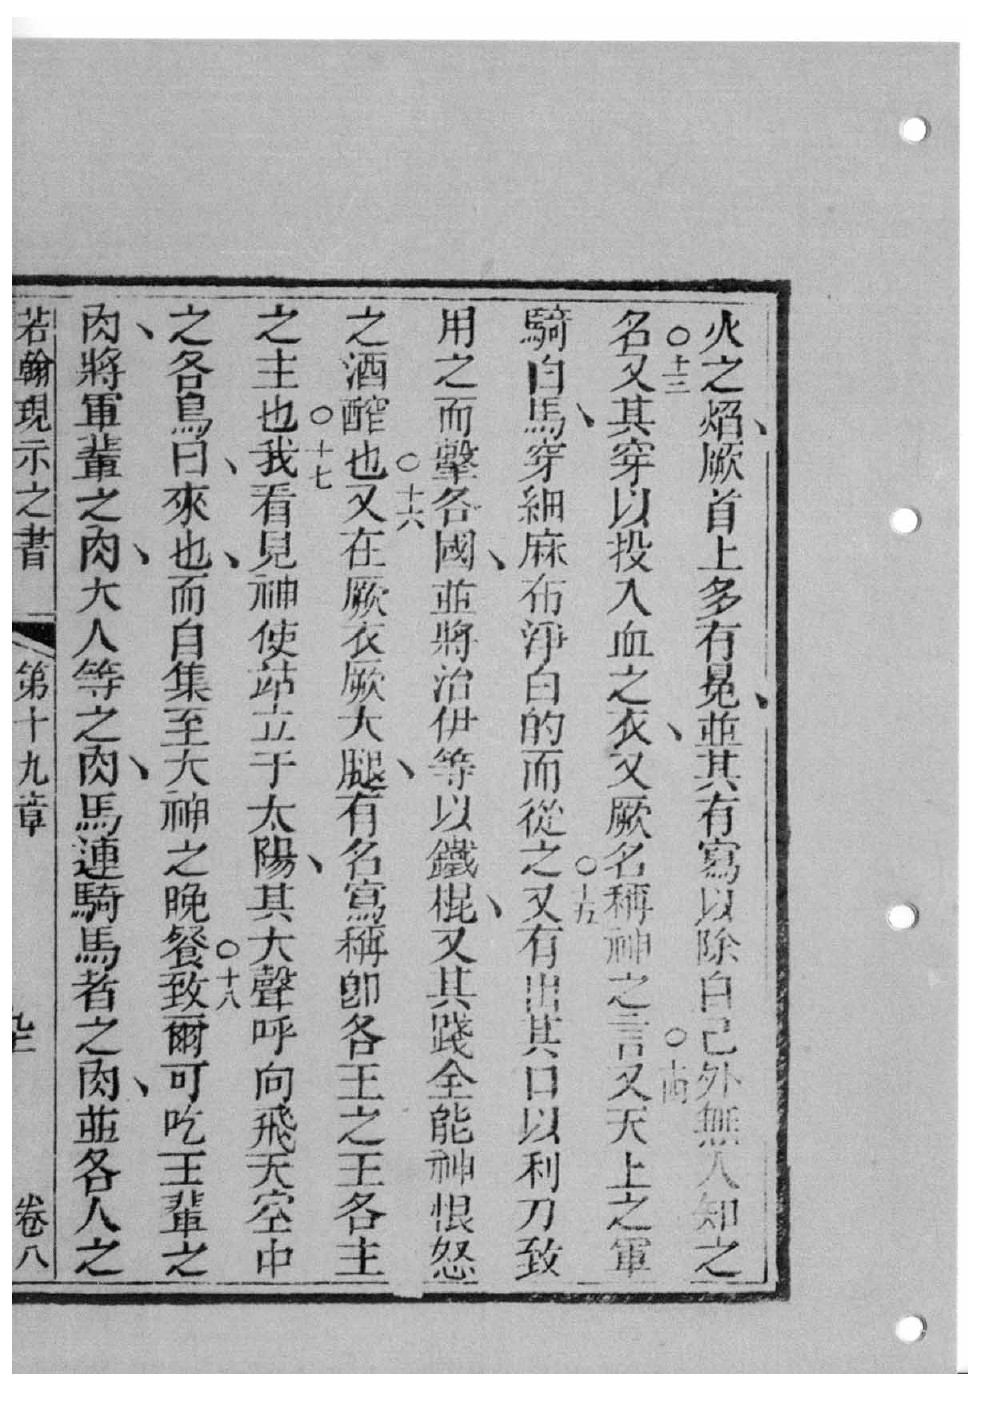 火之焰厥首上多有冕並其有寫以除自己外無人知之
名○十三又其穿以投入血之衣又厥名稱神之言○十四又天上之軍
騎白馬穿細麻布淨白的而從之○十五又有出其口以利刀致
用之而擊各國並將治伊等以鐵棍又其踐全能神恨怒
之酒醡也○十六又在厥衣厥大腿有名寫稱卽各王之王各主
之主也○十七我看見神使站立于太陽其大聲呼向飛天空中
之各鳥曰來也而自集至大神之晚餐○十八致爾可吃王輩之
肉將軍輩之肉大人等之肉馬連騎馬者之肉並各人之
若翰現示之書 第十九章 卷八